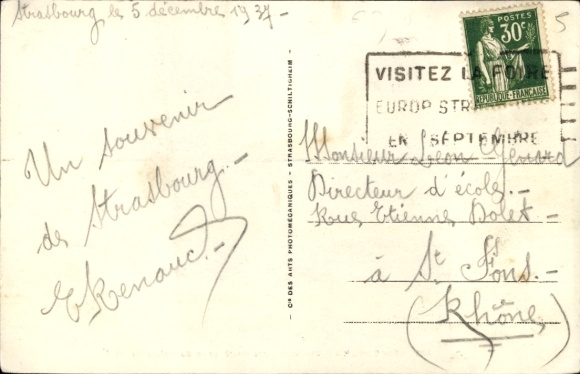 Strasbourg le 5 décembre 1937 -
5
POSTES
30c
RÉPUBLIQUE FRANÇAISE
VISITEZ LA FOIRE
EUROP STRA
EN SEPTEMBRE
Un souvenir
de Strasbourg. -
Renaud. -
Cie DES ARTS PHOTOMÉCANIQUES - STRASBOURG-SCHILTIGHEIM -
Monsieur Léon
Directeur d'école. -
Rue Etienne Dolet -
à St Fons. -
(Rhône)